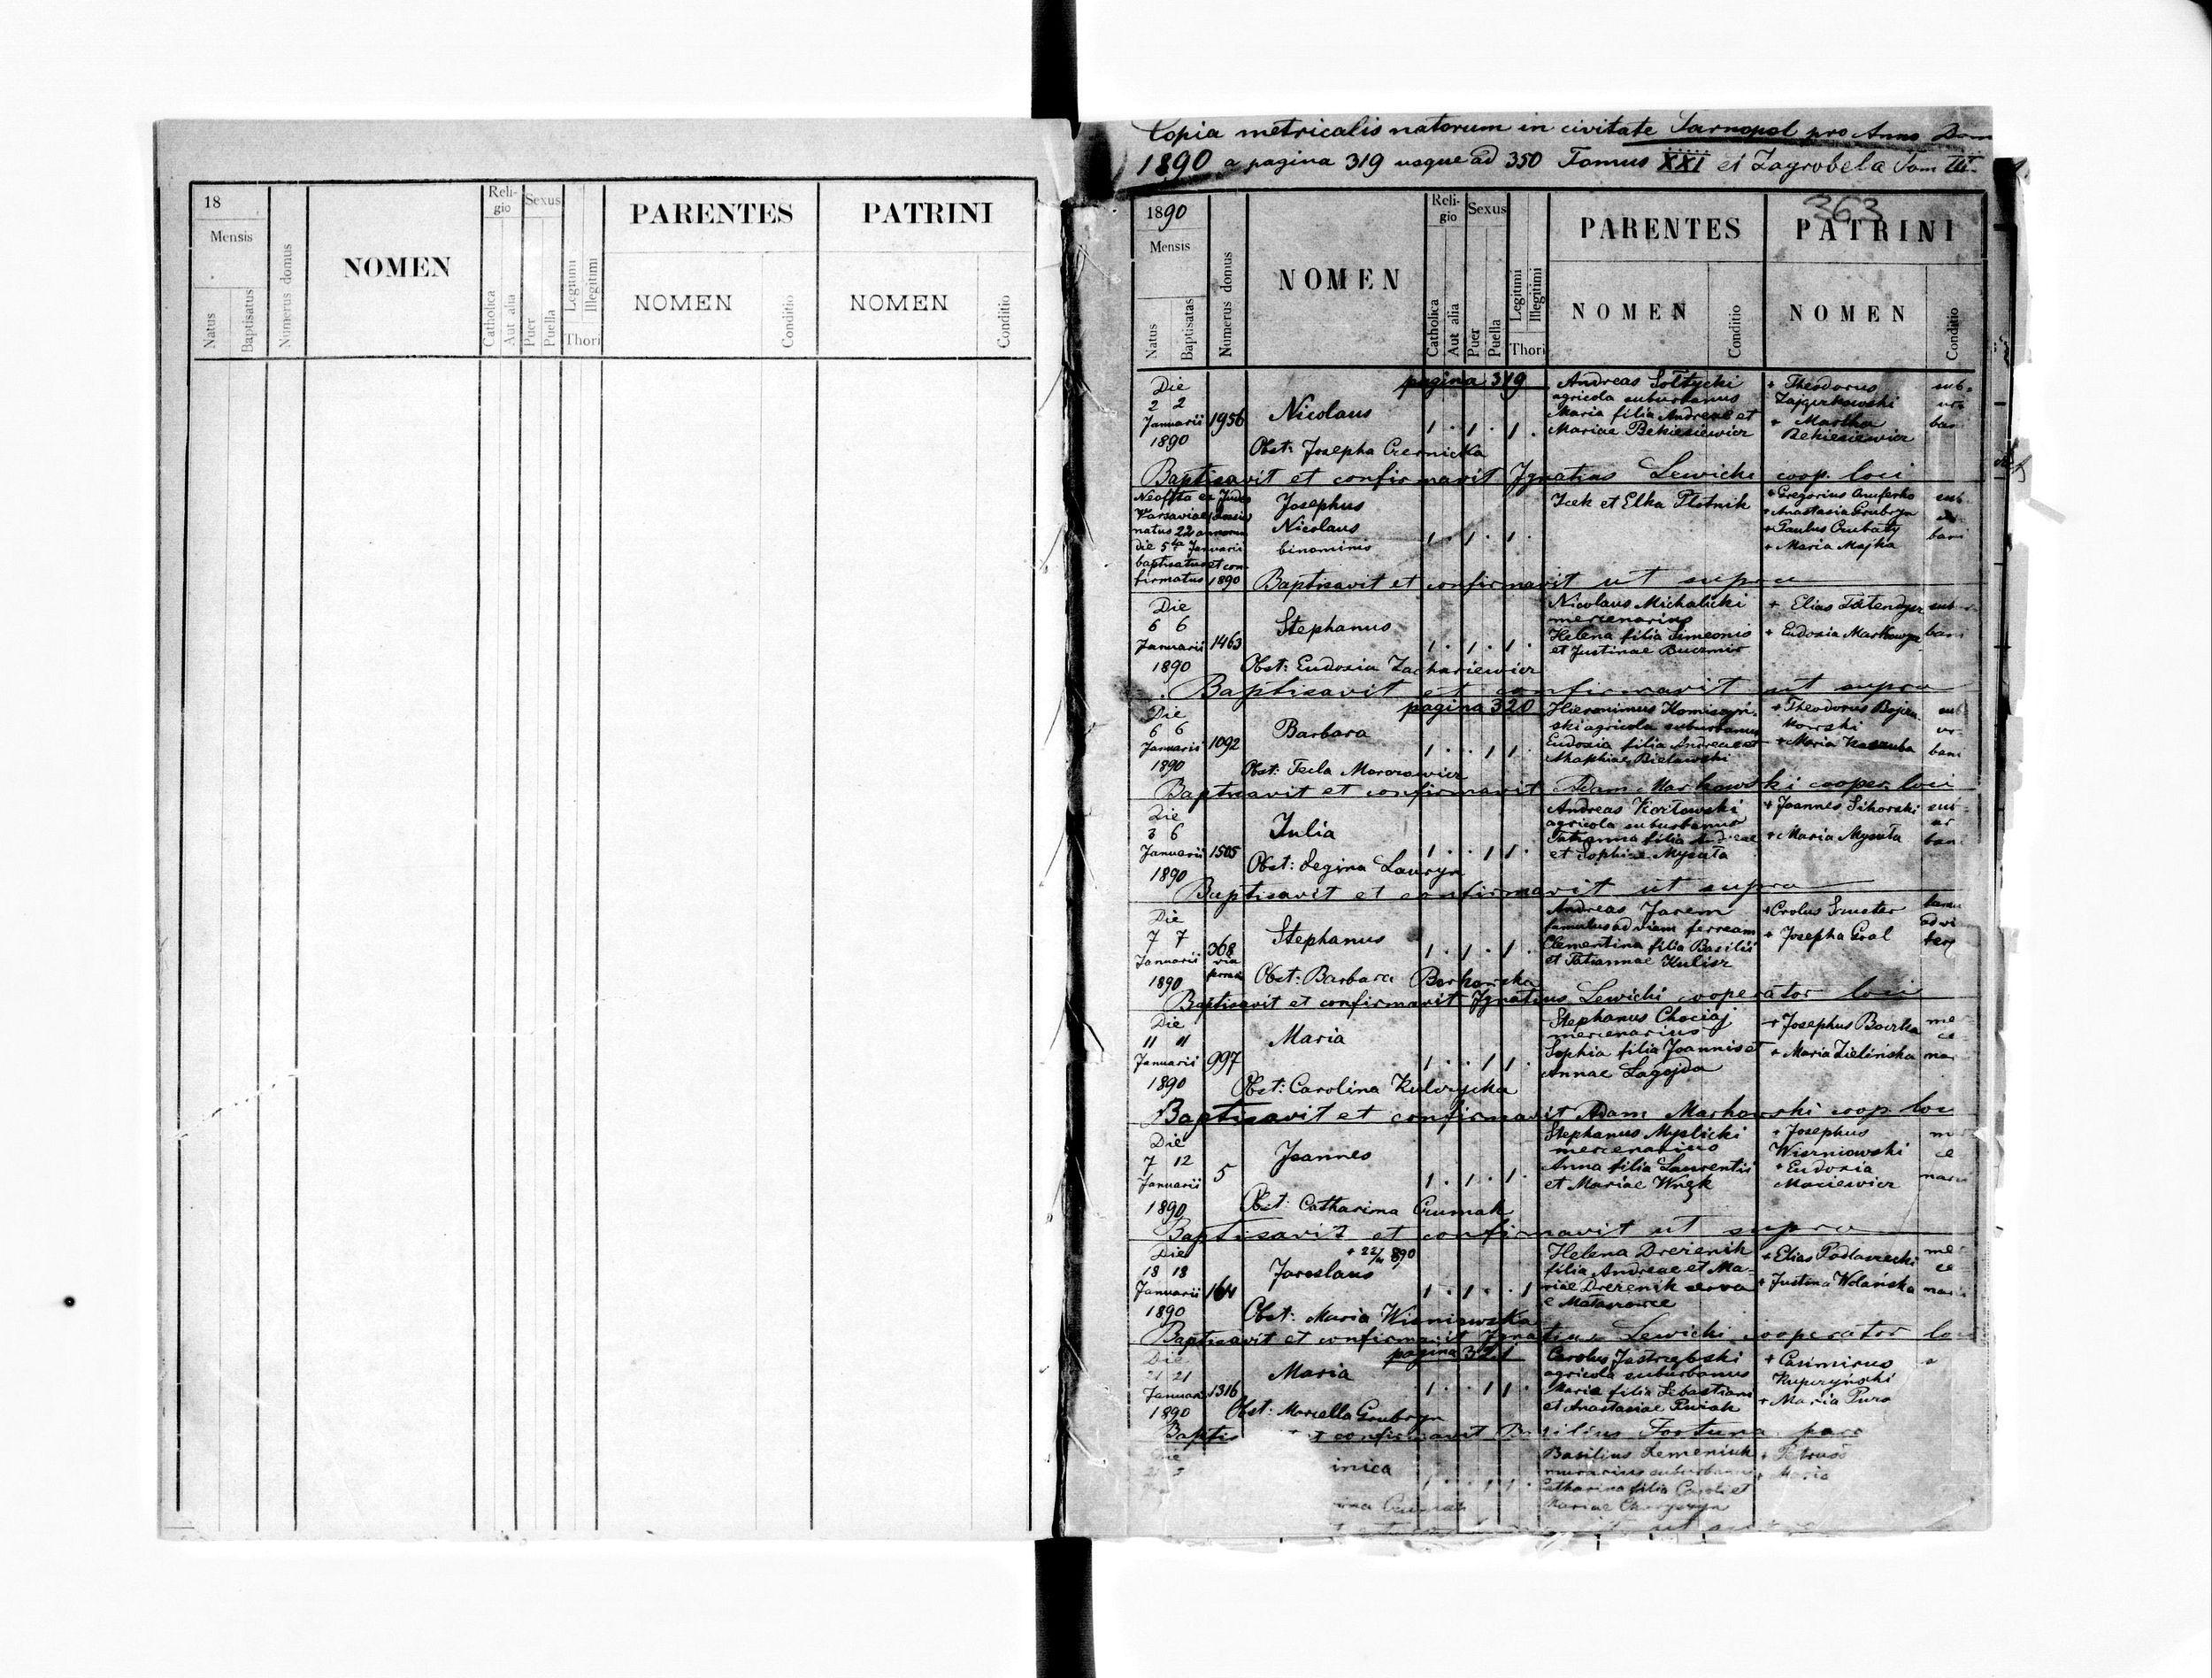 18
Mensis
Natus
Baptisatus
Numerus domus
NOMEN
Religio
Catholica
Aut alia
Sexus
Puer
Puella
Legitimi
Illegitimi
Thori
PARENTES
NOMEN
Conditio
PATRINI
NOMEN
Conditio
Copia metricalis natorum in civitate Tarnopol pro Anno Dom
1890 a pagina 319 usque ad 350 Tomus XXI et Zagrobela Tom III.
1890
Mensis
Natus
Baptisatas
Numerus domus
NOMEN
Religio
Catholica
Aut alia
Sexus
Puer
Puella
Legitimi
Illegitimi
Thori
PARENTES
NOMEN
Conditio
363
PATRINI
NOMEN
Conditio
pagina 319
Die
2 2
Januarii
1890
1956
Nicolaus
1 . 1 . 1 .
Obst: Josepha Czernicka
Andreas Sołtycki
agricola suburbanus
Maria filia Andreae et
Mariae Bekiesiewicz
+ Theodorus
+ Martha
Bekiesiewicz
sub-
ur-
bani
Baptisavit et confirmavit Ignatius Lewicki coop. loci
Neofita ex Judeo
Varsaviae
natus 22 annorum
die 5ta Januarii
baptisatus et con-
firmatus 1890
Josephus
Nicolaus
binominis
1 . 1 . 1 .
Icek et Elka Plotnik
+ Gregorius
+ Anastasia Grubryn
+ Paulus Czubaty
+ Maria Majka
sub-
ur-
bani
Baptisavit et confirmavit ut supra
Die
6 6
Januarii
1890
1463
Stephanus
1 . 1 . 1 .
Obst: Eudoxia Zachariewicz
Nicolaus Michalicki
mercenarius
Helena filia Simeonis
et Justinae
+ Elias
+ Eudoxia
sub-
bani
Baptisavit et confirmavit ut supra
pagina 320
Die
6 6
Januarii
1890
1092
Barbara
1 . . 1 1 .
Obst: Tecla Morozowicz
Hieronimus
ski agricola suburbanus
Eudoxia filia Andreae et
Agaphiae Bielawski
+ Theodorus
+ Maria Kaszuba
sub
ur-
bani
Baptisavit et confirmavit Adam Markowski cooper. loci
Die
3 6
Januarii
1890
1505
Julia
1 . . 1 1 .
Obst: Regina Lauryn
Andreas Kozłowski
agricola suburbanus
Tatianna filia Andreae
et Sophiae Mysuła
+ Joannes Sikorski
+ Maria Mysuła
sub-
ur
bani
Baptisavit et confirmavit ut supra
Die
7 7
Januarii
1890
368
via
ferrea
Stephanus
1 . 1 . 1 .
Obst: Barbara Borkowska
Andreas Jarem
famulus ad viam ferream
Clementina filia Basilii
et Tatiannae Kulisz
+ Carolus
+ Josepha Gral
Baptisavit et confirmavit Ignatius Lewicki cooperator loci
Die
11 11
Januarii
1890
997
Maria
1 . . 1 1 .
Obst: Carolina Kulczycka
Stephanus Chociaj
mercenarius
Sophia filia Joannis et
Annae Lagojda
+ Josephus Boczka
+ Maria Zielińska
mer
ce
nar
Baptisavit et confirmavit Adam Markowski coop. loci
Die
7 12
Januarii
1890
5
Joannes
1 . 1 . 1 .
Obst: Catharina Czumak
Stephanus Myślicki
mercenarius
Anna filia Laurentii
et Mariae Wnęk
+ Josephus
Wiśniowski
+ Eudoxia
Maciewicz
mer
ce
narii
Baptisavit et confirmavit ut supra
Die
18 18
Januarii
1890
164
Jaroslaus
1 . 1 . . 1
Obst: Maria Wiśniowska
Helena Dreżenik
filia Andreae et Ma-
riae Dreżenik serva
+ Elias
+ Justina Wolańska
mer
ce
narii
Baptisavit et confirmavit Ignatius Lewicki cooperator loci
pagina 321
Die
21 21
Januarii
1890
1316
Maria
1 . . 1 1 .
Obst: Marcella Grubryn
Carolus Jastrzębski
agricola suburbanus
Maria filia Sebastiani
et Anastasiae
+ Casimirus
Kupczyński
+ Maria
Baptis et confirmavit Basilius Fortuna paro
Die
inica
Basilius Semeniuk
murarius suburbanus
Catharina filia Caroli et
Mariae
+ Petrus
+ Maria